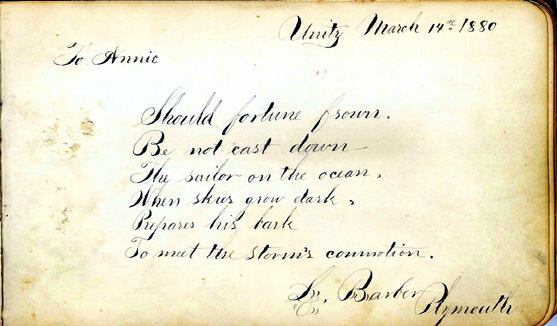 Unity March 14th 1880
To Annie
Should fortune frown.
Be not cast down
The sailor on the ocean,
When skies grow dark,
Prepares his bark
To meet the storm's commotion.
Barber
Plymouth